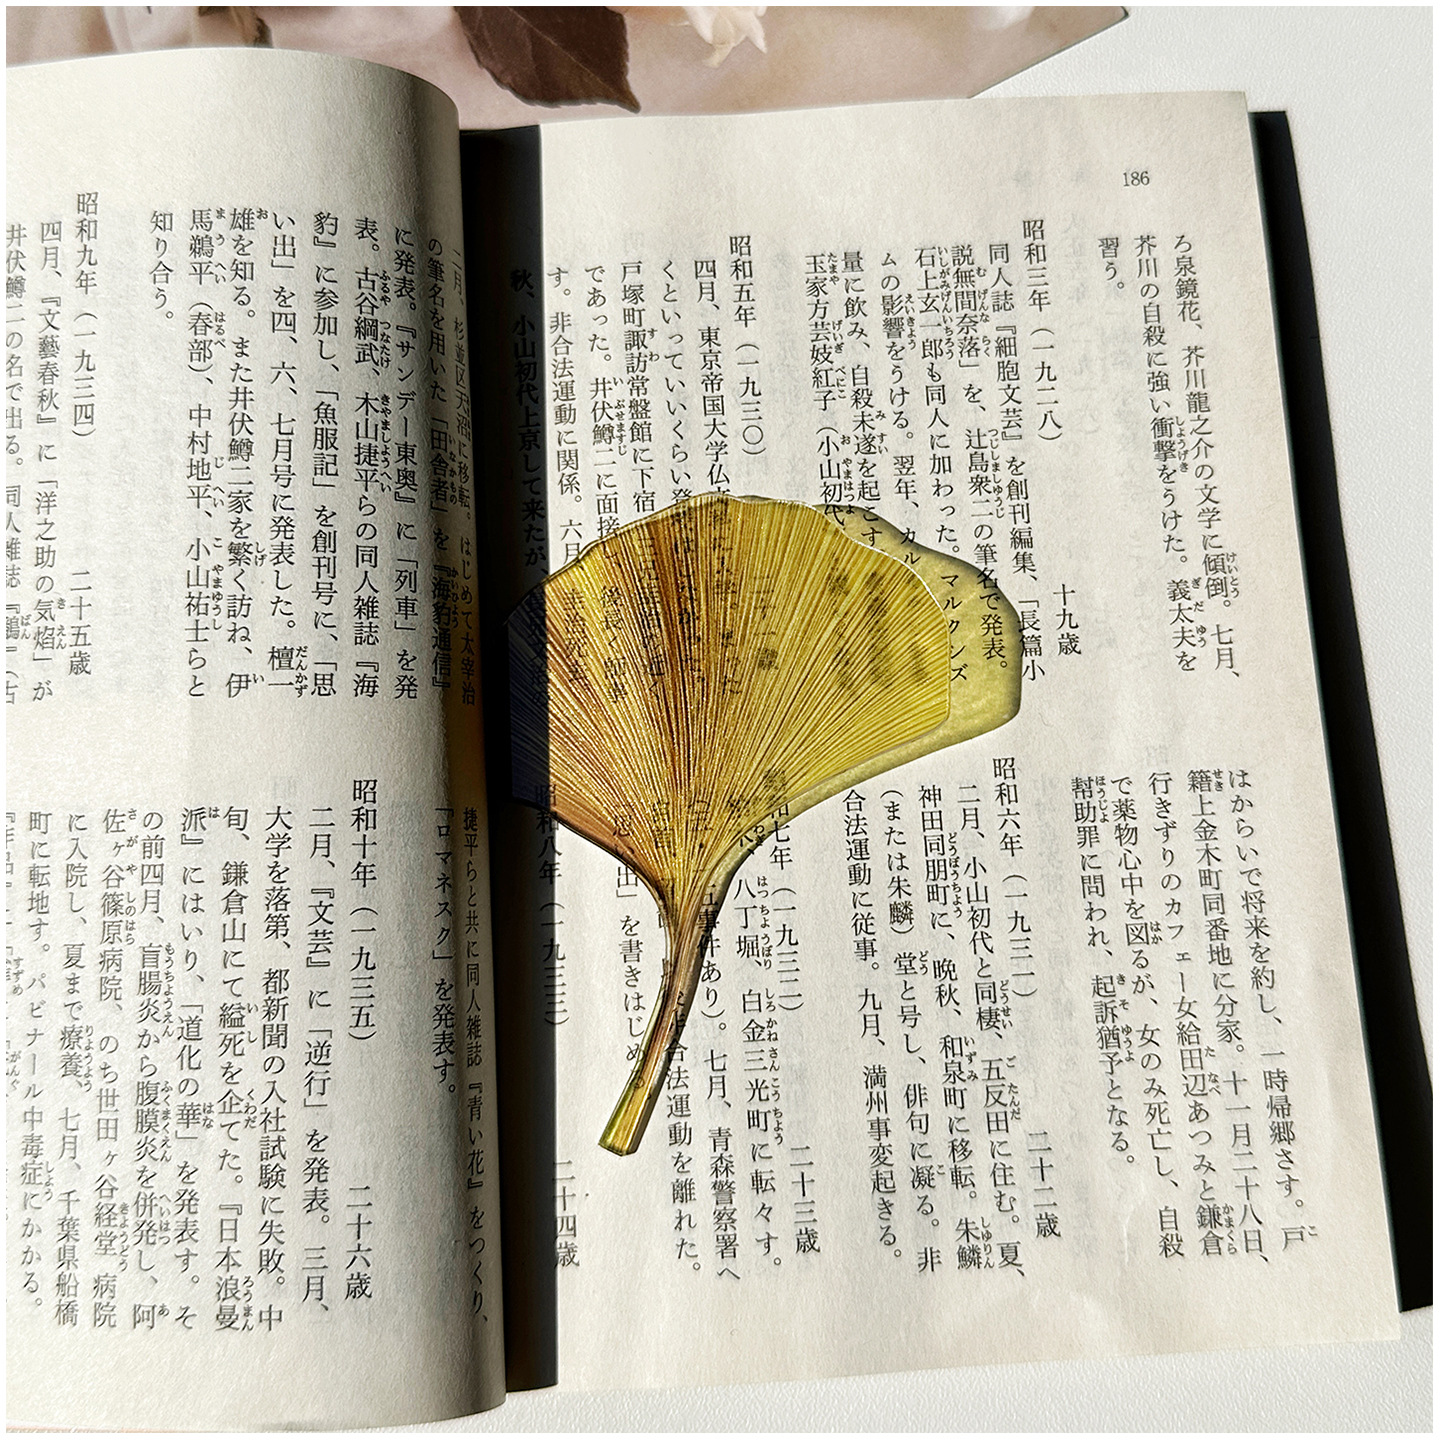 186
ろ泉鏡花、芥川龍之介の文学に傾倒。七月、
芥川の自殺に強い衝撃をうけた。義太夫を
習う。
昭和三年（一九二八） 十九歳
同人誌『細胞文芸』を創刊編集、「長篇小
説無間奈落」を、辻島衆二の筆名で発表。
石上玄一郎も同人に加わった。マルクシズ
ムの影響をうける。翌年、カル
量に飲み、自殺未遂を起こす
玉家方芸妓紅子（小山初代
昭和五年（一九三〇）
四月、東京帝国大学仏
くといっていいくらい
戸塚町諏訪常盤館に下宿
であった。井伏鱒二に面接し、
す。非合法運動に関係。六月
秋、小山初代上京して来たが、
はからいで将来を約し、一時帰郷さす。戸
籍上金木町同番地に分家。十一月二十八日、
行きずりのカフェー女給田辺あつみと鎌倉
で薬物心中を図るが、女のみ死亡し、自殺
幇助罪に問われ、起訴猶予となる。
昭和六年（一九三一） 二十二歳
二月、小山初代と同棲、五反田に住む。夏、
神田同朋町に、晩秋、和泉町に移転。朱鱗
（または朱麟）堂と号し、俳句に凝る。非
合法運動に従事。九月、満州事変起きる。
七年（一九三二） 二十三歳
八丁堀、白金三光町に転々す。
事件あり）。七月、青森警察署へ
合法運動を離れた。
出」を書きはじめる。
昭和八年（一九三三） 二十四歳
二月、杉並区天沼に移転。はじめて太宰治
の筆名を用いた「田舎者」を『海豹通信』
に発表。『サンデー東奥』に「列車」を発
表。古谷綱武、木山捷平らの同人雑誌『海
豹』に参加し、「魚服記」を創刊号に、「思
い出」を四、六、七月号に発表した。檀一
雄を知る。また井伏鱒二家を繁く訪ね、伊
馬鵜平（春部）、中村地平、小山祐士らと
知り合う。
昭和九年（一九三四） 二十五歳
四月、『文藝春秋』に「洋之助の気焰」が
井伏鱒二の名で出る。同人雑誌『鷭』（古
捷平らと共に同人雑誌『青い花』をつくり、
「ロマネスク」を発表す。
昭和十年（一九三五） 二十六歳
二月、『文芸』に「逆行」を発表。三月、
大学を落第、都新聞の入社試験に失敗。中
旬、鎌倉山にて縊死を企てた。『日本浪曼
派』にはいり、「道化の華」を発表す。そ
の前四月、盲腸炎から腹膜炎を併発し、阿
佐ヶ谷篠原病院、のち世田ヶ谷経堂病院
に入院し、夏まで療養、七月、千葉県船橋
町に転地す。パビナール中毒症にかかる。